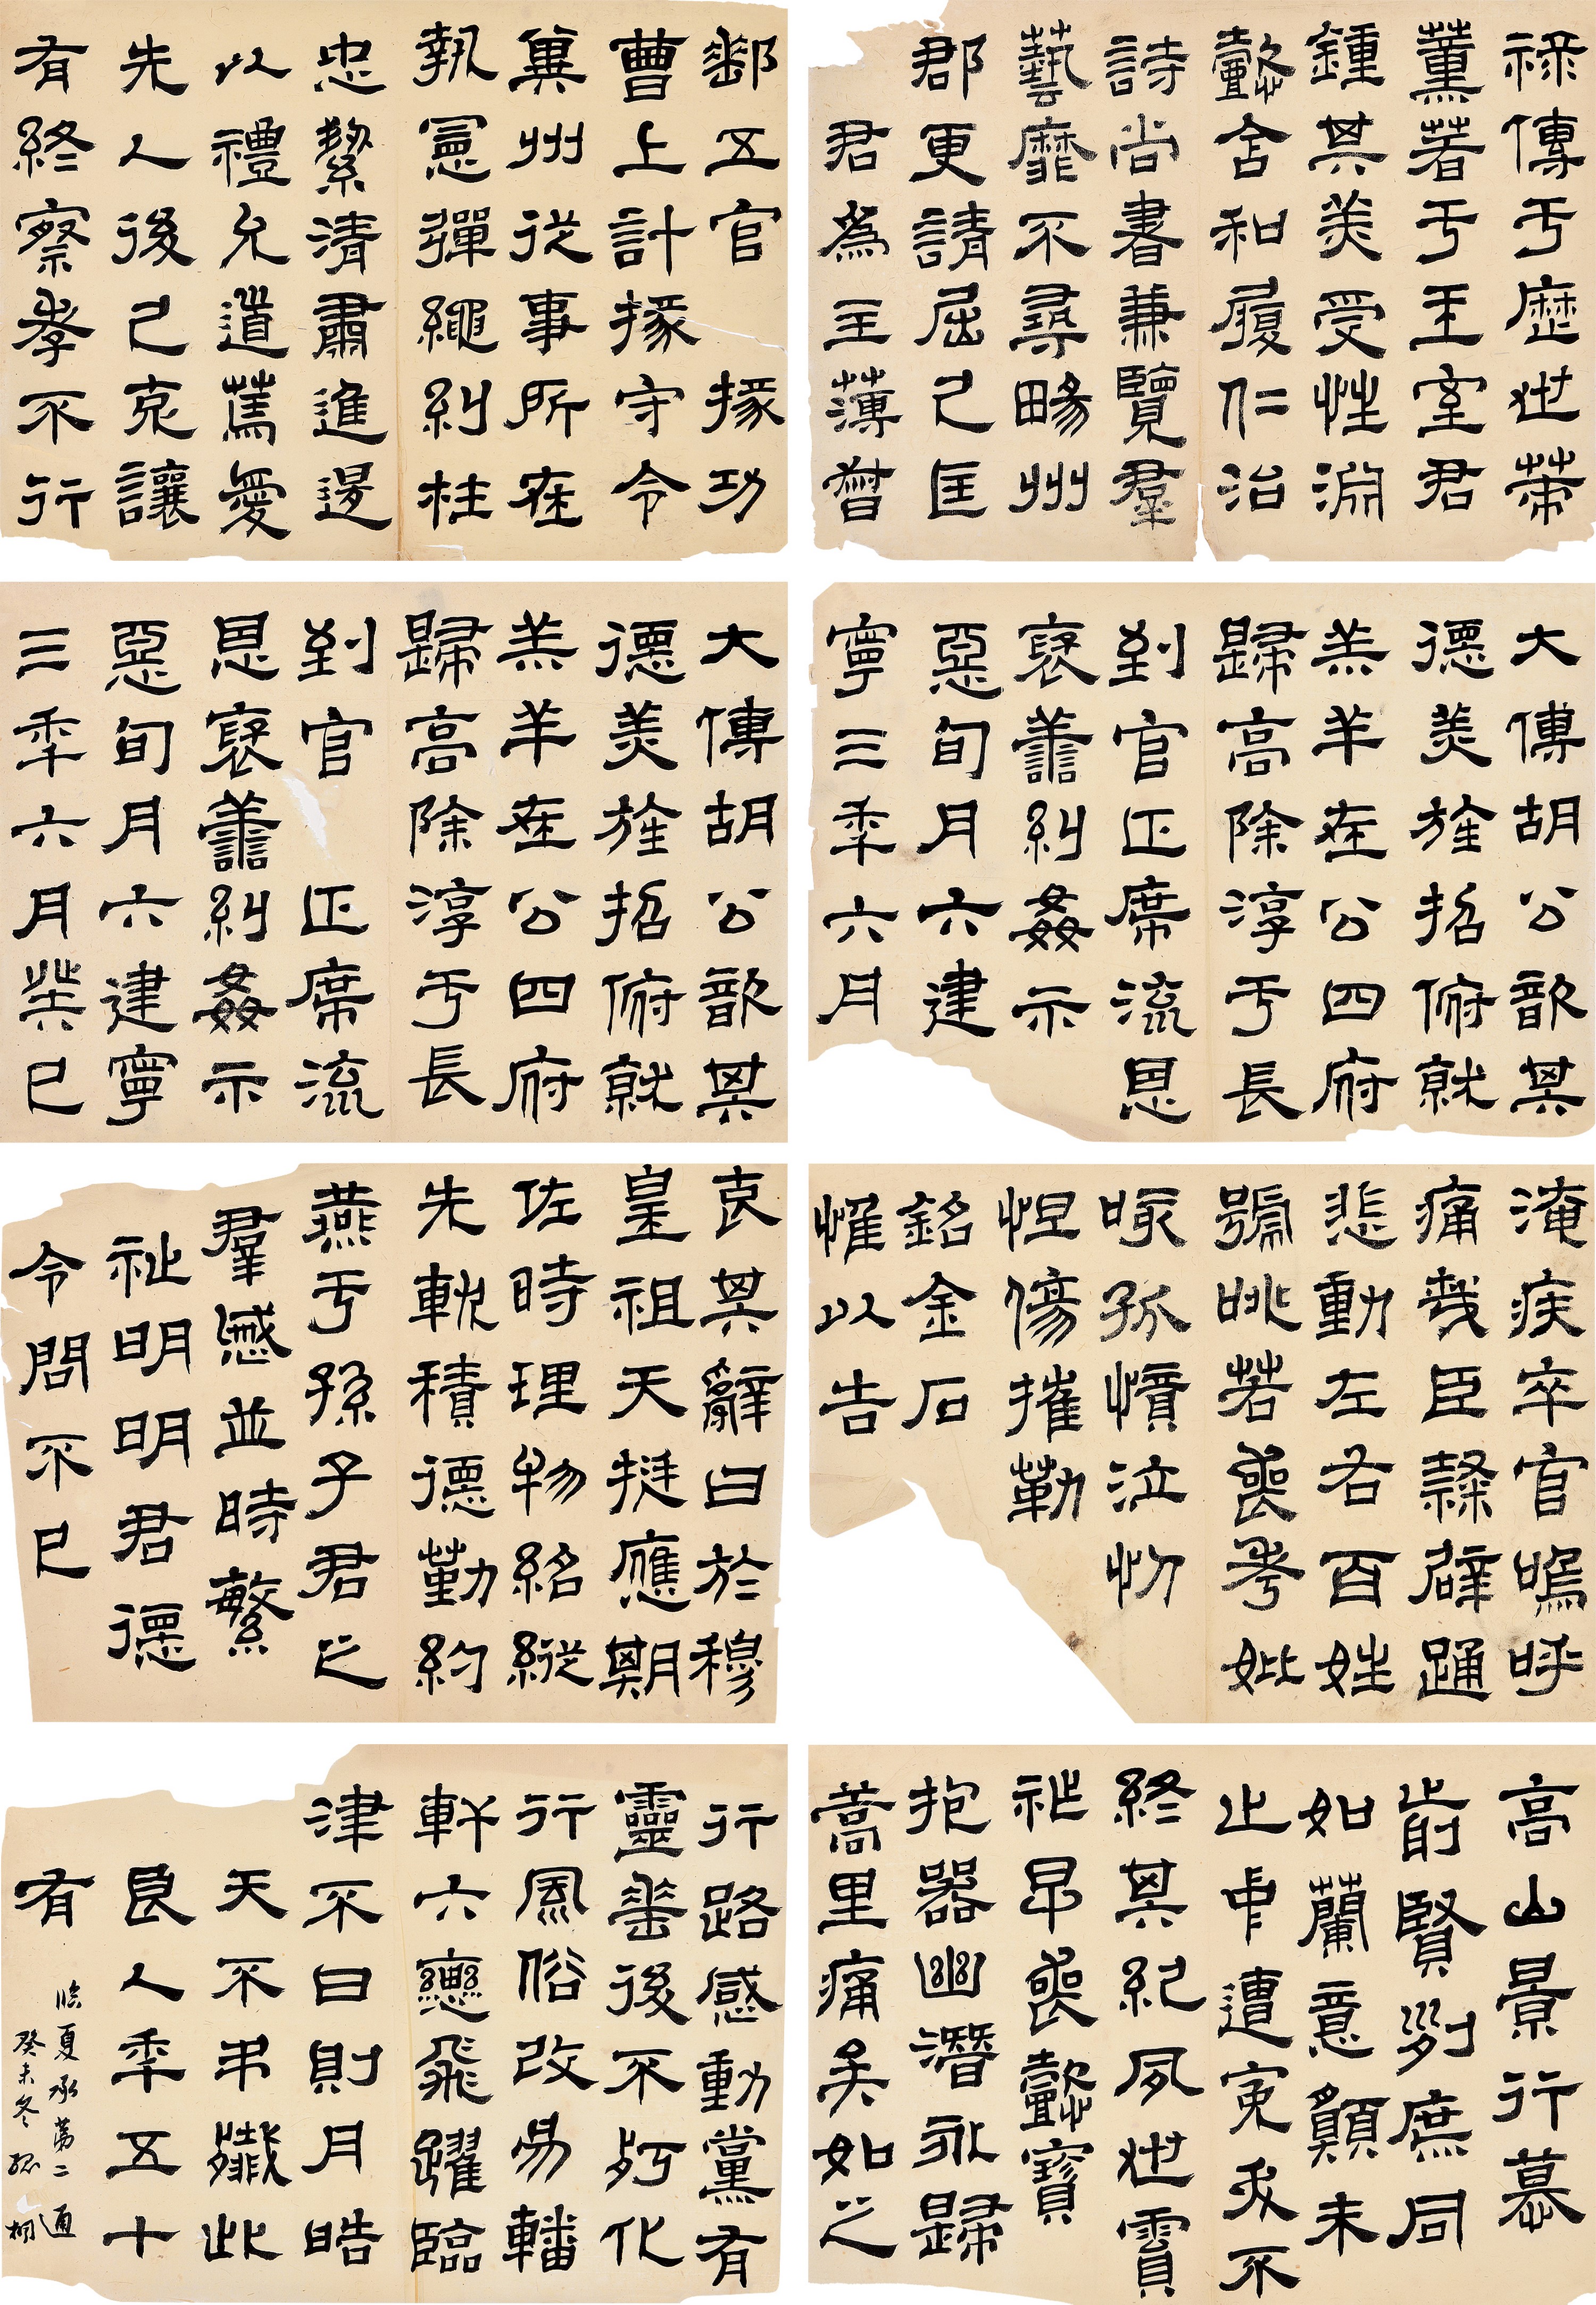 祿傳于歷世策
薰著于王室君
鍾其美受性淵
懿含和履仁治
詩尚書兼覽羣
藝靡不尋暢州
郡更請屈己匡
君爲主薄督
郵五官掾功
曹上計掾守令
冀州從事所在
執憲彈繩糾枉
忠絜清肅進退
以禮允道篤愛
先人後己克讓
有終察孝不行
大傅胡公歆其
德美旌招俯就
羔羊在公四府
歸高除淳于長
到官正席流恩
褒善糾姦示
惡旬月六建
寧三年六月
大傅胡公歆其
德美旌招俯就
羔羊在公四府
歸高除淳于長
到官正席流
恩褒善糾姦示
惡旬月六建寧
三年六月癸巳
淹疾卒官嗚呼
痛哉臣隸辟踊
悲動左右百姓
號咷若喪考妣
咳孤憤泣忉
怛傷摧勒
銘金石
惟以告
哀其辭曰於穆
皇祖天挺應期
佐時理物紹縱
先軌積德勤約
燕于孫子君之
羣慼並時繁
祉明明君德
令問不已
高山景行慕
前賢列庶同
如蘭意願未
止中遭冤夭不
終其紀夙世實
祚早喪懿寶
抱器幽潛永歸
蒿里痛矣如之
行路感動黨有
靈垂後不朽化
行風俗改易轓
軒六轡飛躍臨
津不日則月皓
天不弔殲此
良人年五十
有
臨夏承第二通
癸未冬 桐